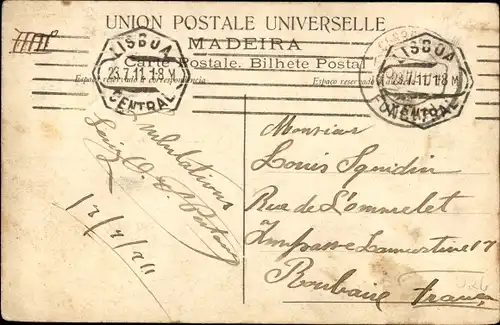 UNION POSTALE UNIVERSELLE
MADEIRA
Carte Postale. Bilhete Postal
Espaço reservado á correspondencia
Espaço reservado
LISBOA
23.7.11. 1·8 M
CENTRAL
LISBOA
23.7.11. 1·8 M
CENTRAL
FUNCHAL
Monsieur
Louis
Rue de l'Ommelet
Impasse Lamartine 17
Roubaix France